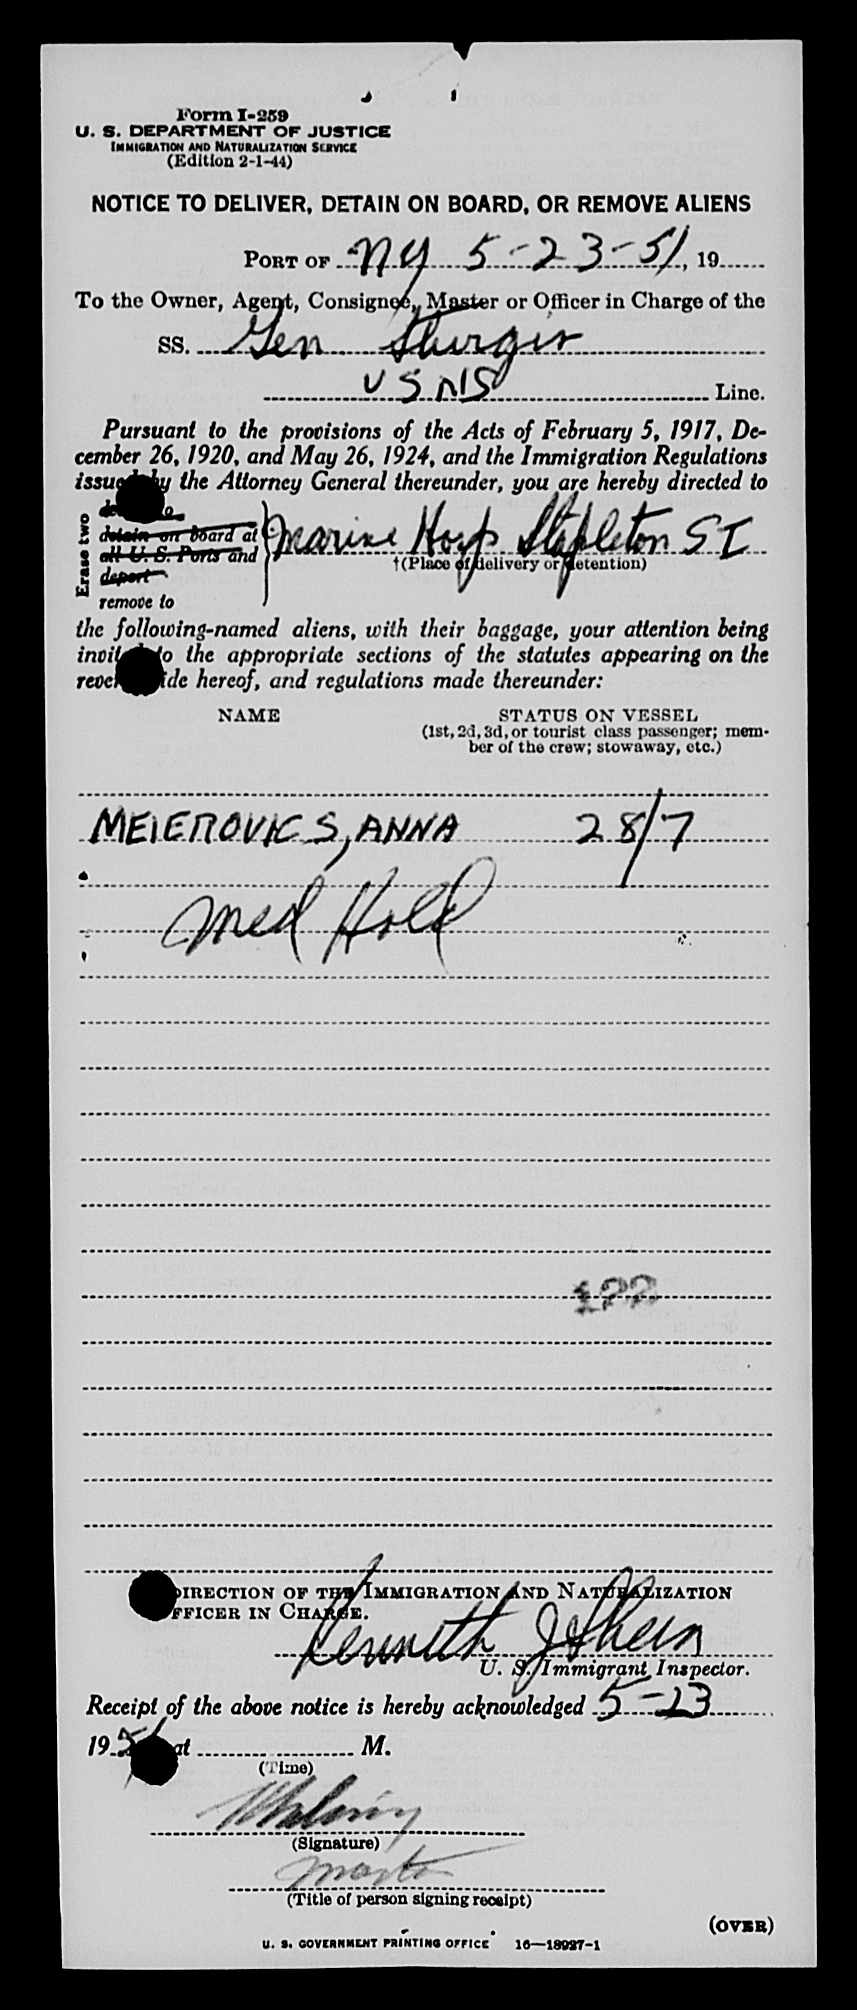 Form I-259
U. S. DEPARTMENT OF JUSTICE
IMMIGRATION AND NATURALIZATION SERVICE
(Edition 2-1-44)
NOTICE TO DELIVER, DETAIN ON BOARD, OR REMOVE ALIENS
PORT OF NY 5-23-51, 19
To the Owner, Agent, Consignee, Master or Officer in Charge of the
SS. Gen Sturgis
USNS Line.
Pursuant to the provisions of the Acts of February 5, 1917, De-
cember 26, 1920, and May 26, 1924, and the Immigration Regulations
issued by the Attorney General thereunder, you are hereby directed to
Erase two
detain on board at
all U. S. Ports and
deport
remove to
Marine Hosp Stapleton S I
†(Place of delivery or detention)
the following-named aliens, with their baggage, your attention being
invited to the appropriate sections of the statutes appearing on the
reverse side hereof, and regulations made thereunder:
NAME STATUS ON VESSEL
(1st, 2d, 3d, or tourist class passenger; mem-
ber of the crew; stowaway, etc.)
MEIEROVICS, ANNA 28/7
Med Hold
122
DIRECTION OF THE IMMIGRATION AND NATURALIZATION
OFFICER IN CHARGE.
Kenneth J Shein
U. S. Immigrant Inspector.
Receipt of the above notice is hereby acknowledged 5-23
1951 at M.
(Time)
(Signature)
Master
(Title of person signing receipt)
(OVER)
U. S. GOVERNMENT PRINTING OFFICE 16—18927-1